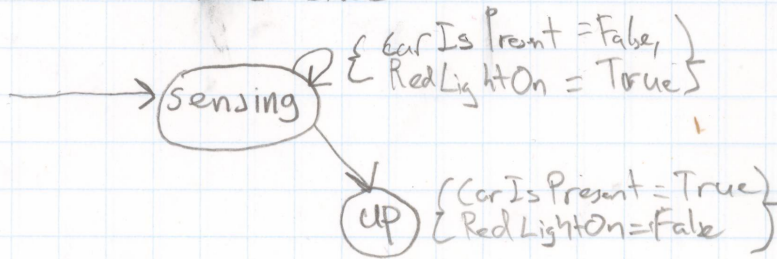 {CarIsPresent = False,}
{RedLightOn = True}
Sensing
{CarIsPresent = True}
UP
{RedLightOn = False}